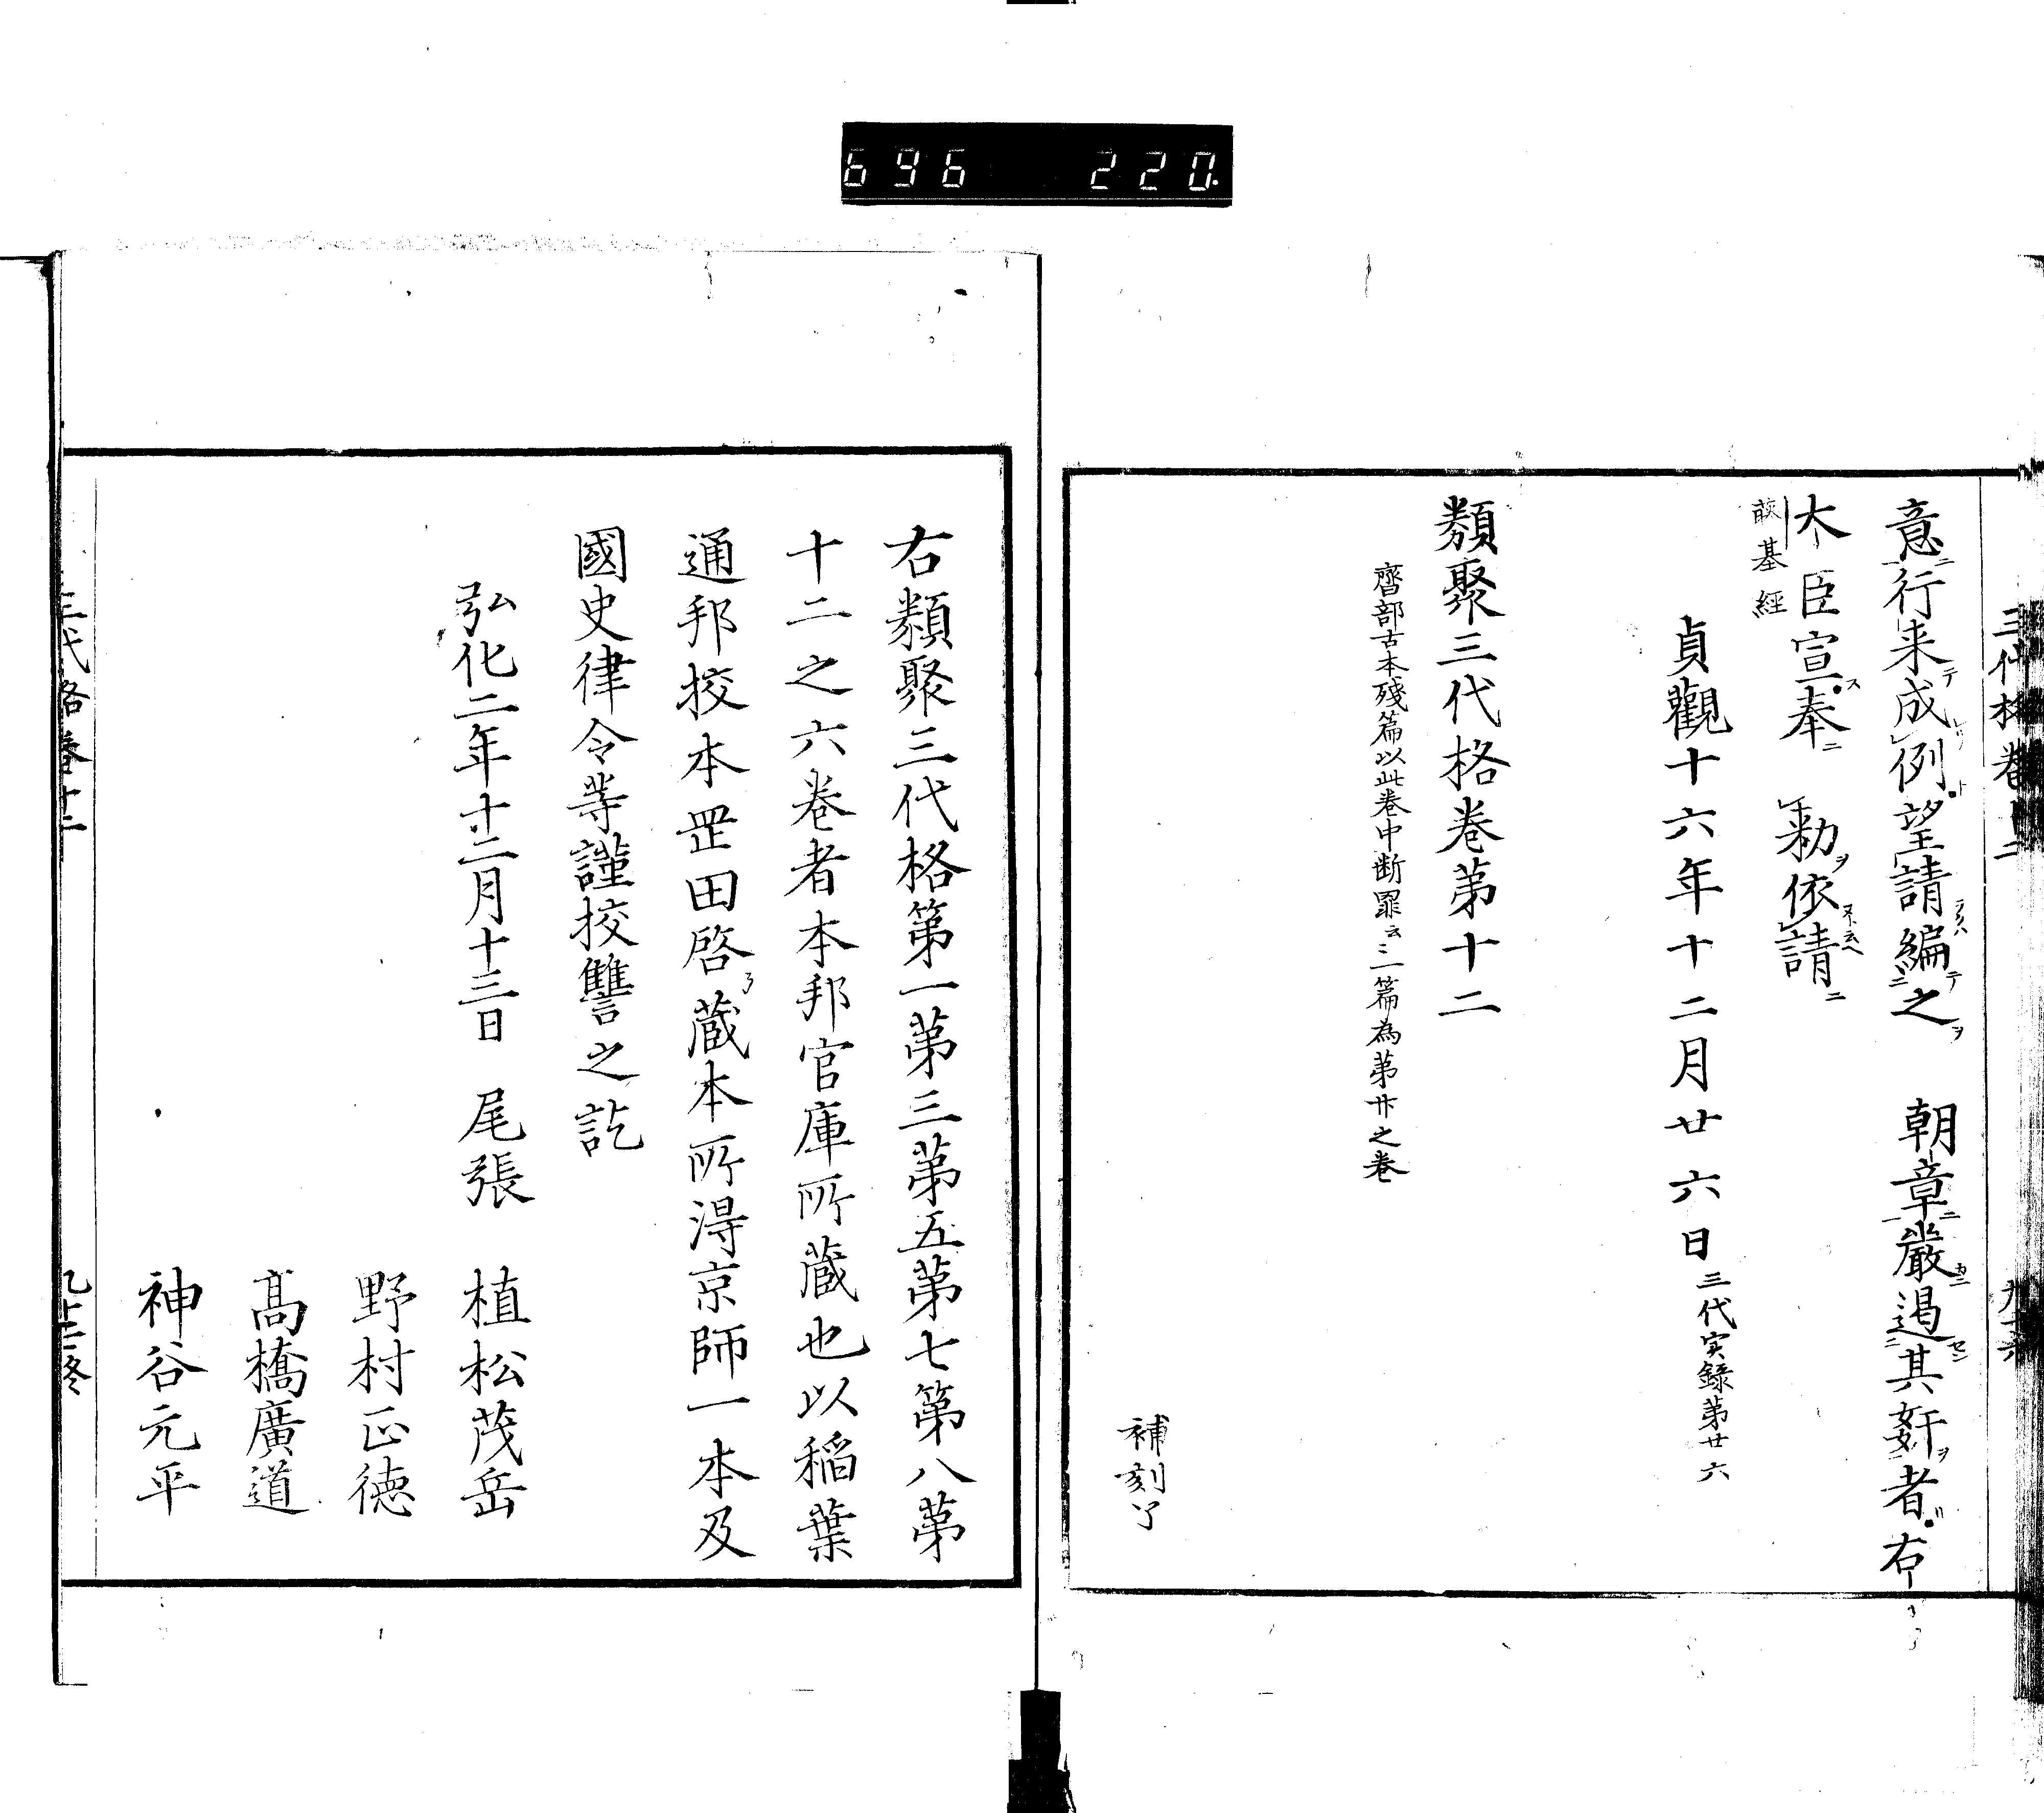 696 220
意行来成例望請編之 朝章嚴遏其姧者右
大臣宣奉 勅依請
基經
貞觀十六年十二月廿六日 三代実録第廿六
類聚三代格卷第十二
齋部古本殘篇以此卷中断罪云々一篇為第廿之卷
補刻了
右類聚三代格第一第三第五第七第八第
十二之六卷者本邦官庫所蔵也以稲葉
通邦挍本岡田啓蔵本所淂京師一本及
國史律令等謹挍讐之訖
弘化二年十二月十三日 尾張 植松茂岳
野村正徳
髙橋廣道
神谷元平
三代格卷十二